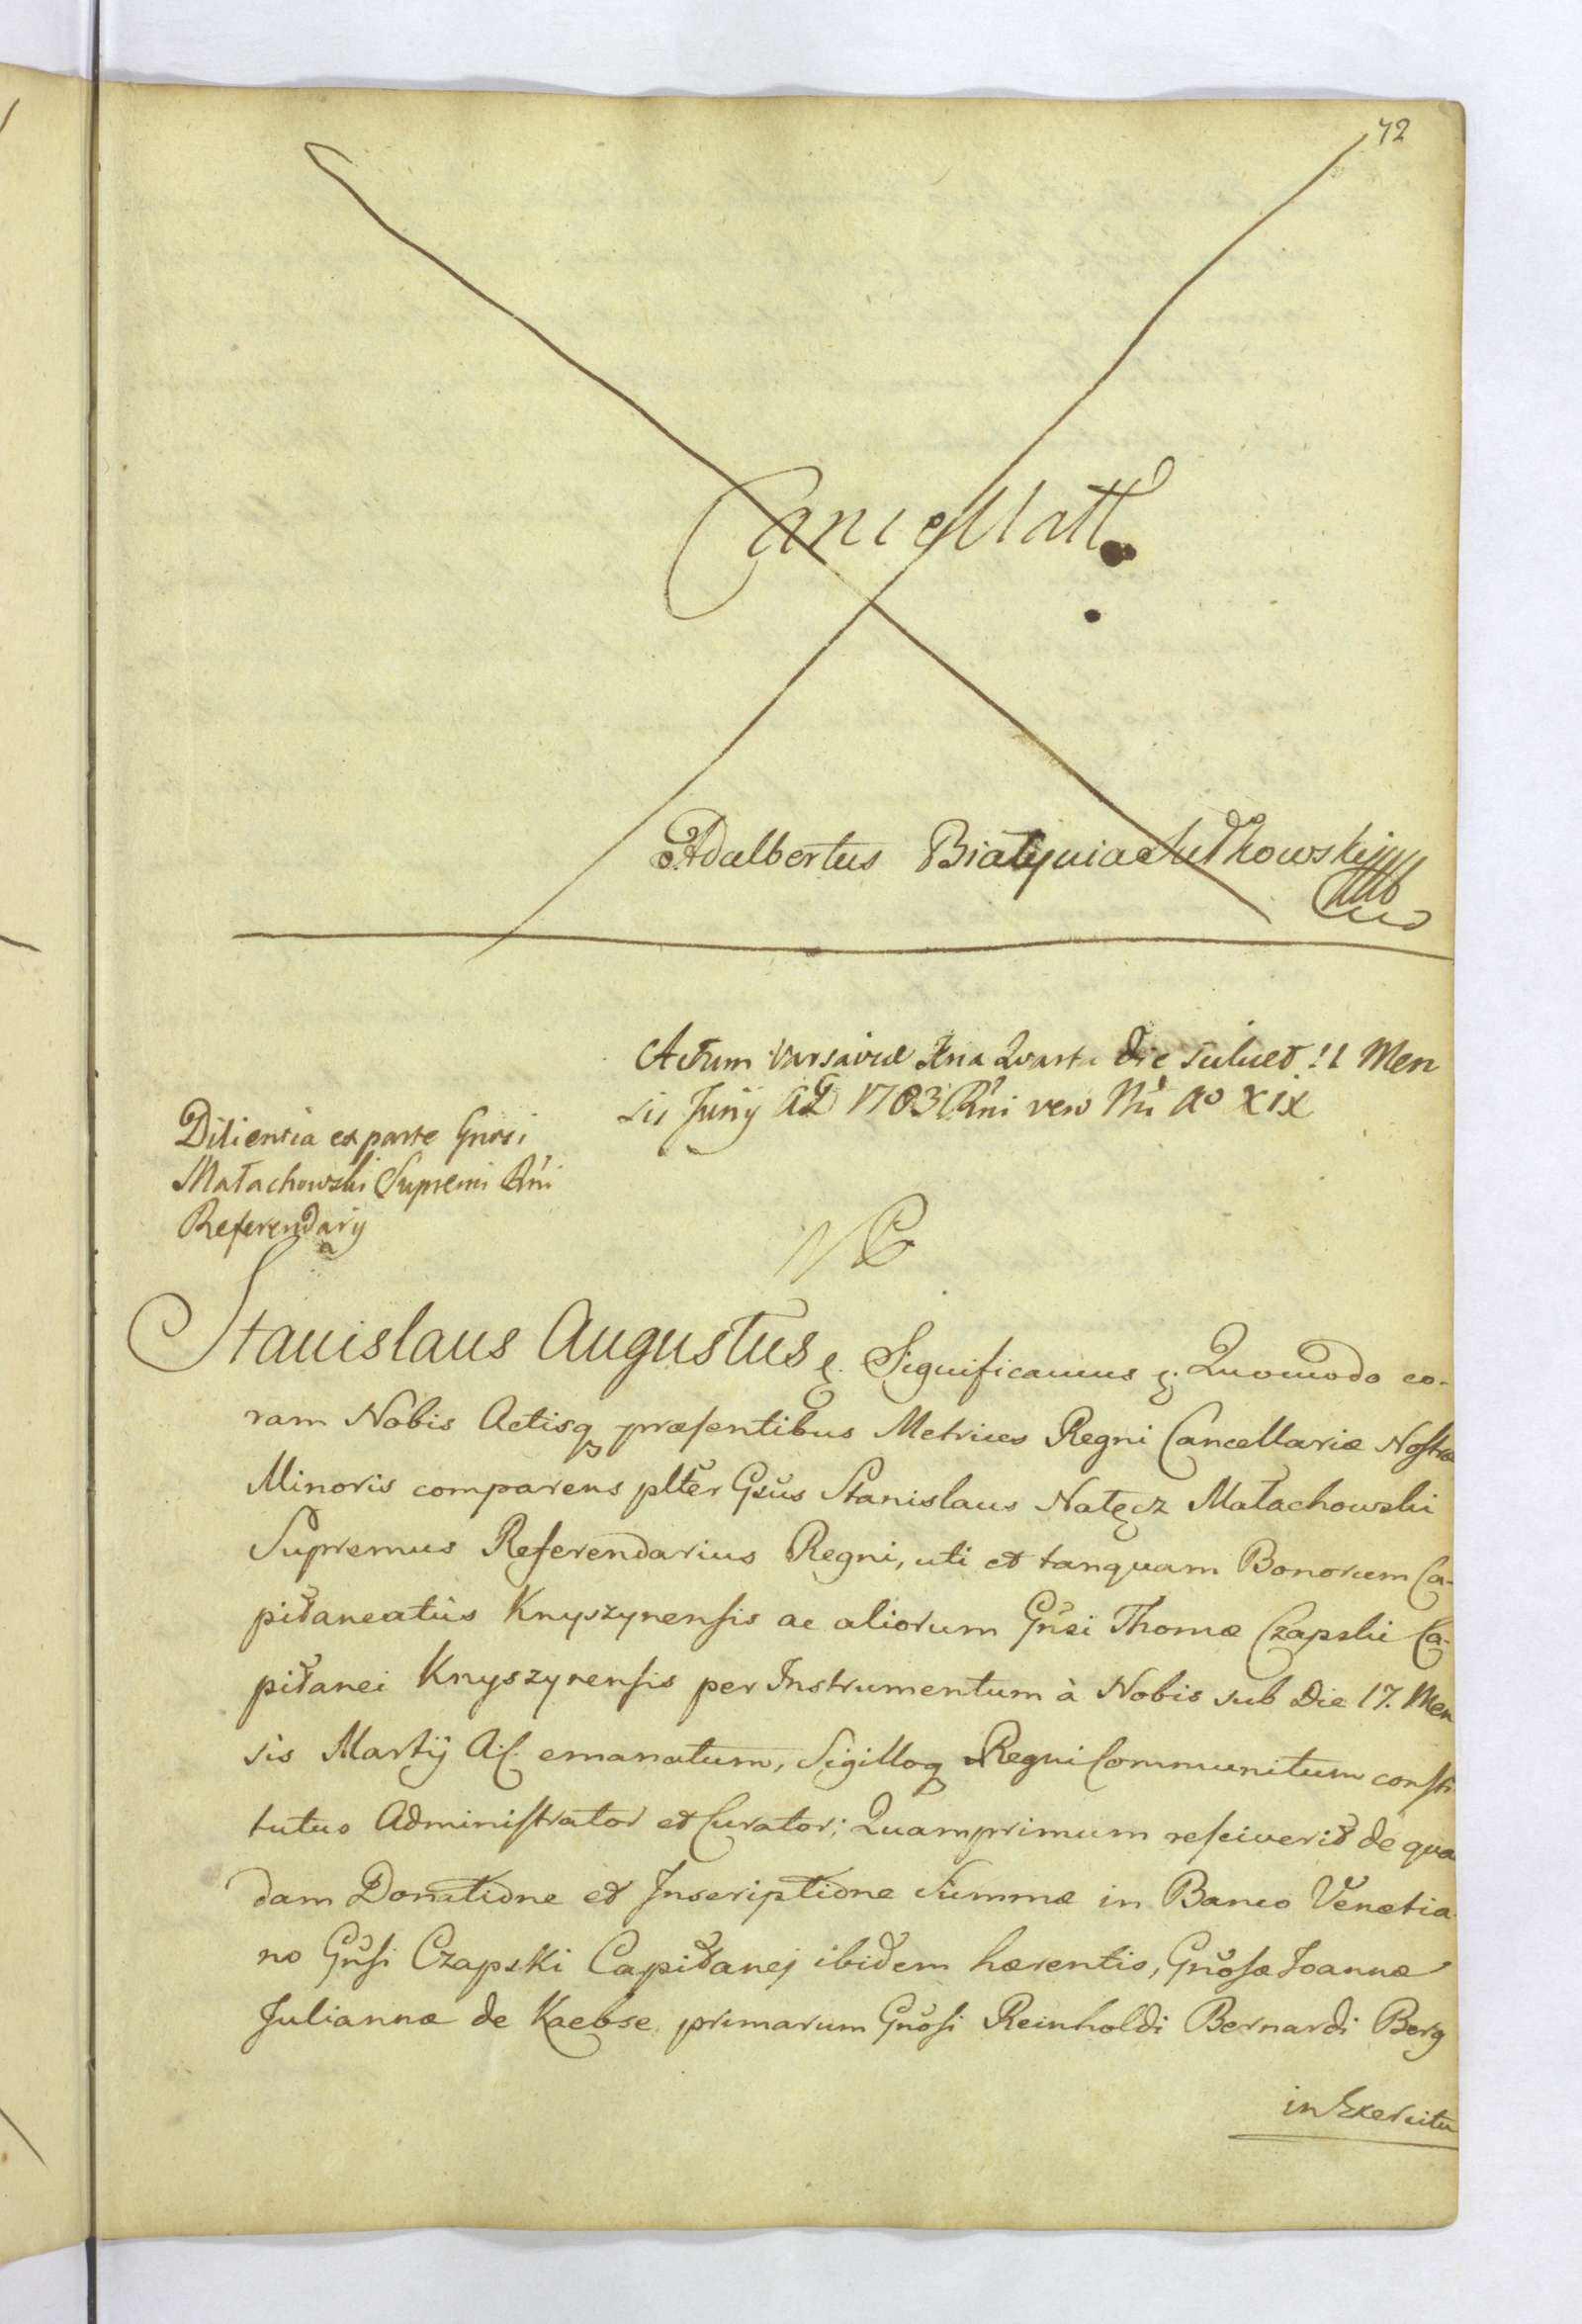 72
Cancellatt
Adalbertus Białynia Jutkowski
Actum Varsaviæ Fria Quarta Die scilicet 11 Men
sis Junij AD 1783 Rni vero Nri Ao XIX
Dilientia ex parte Gnosi
Małachowski Supremi Rni
Referendarij
Stanislaus Augustus &. Significamus &. Quomodo co-
ram Nobis Actisq præsentibus Metrices Regni Cancellariæ Nostræ
Minoris comparens plter Gsus Stanislaus Nałęcz Małachowski
Supremus Referendarius Regni, uti et tanquam Bonorum Ca-
pitaneatûs Knyszynensis ac aliorum Gnsi Thomæ Czapski Ca-
pitanei Knyszynensis per Instrumentum à Nobis sub Die 17. Men
sis Martij A.C. emanatum, Sigilloq Regni Communitum consti
tutus Administrator et Curator; Quamprimum resciverit de qua
dam Donatione et Inscriptione Summæ in Banco Venetia
no Gnsi Czapski Capitanej ibidem hærentis, Gnosæ Joannæ
Juliannæ de Kaebse primarum Gnosi Reinholdi Bernardi Berg
in Exercitu